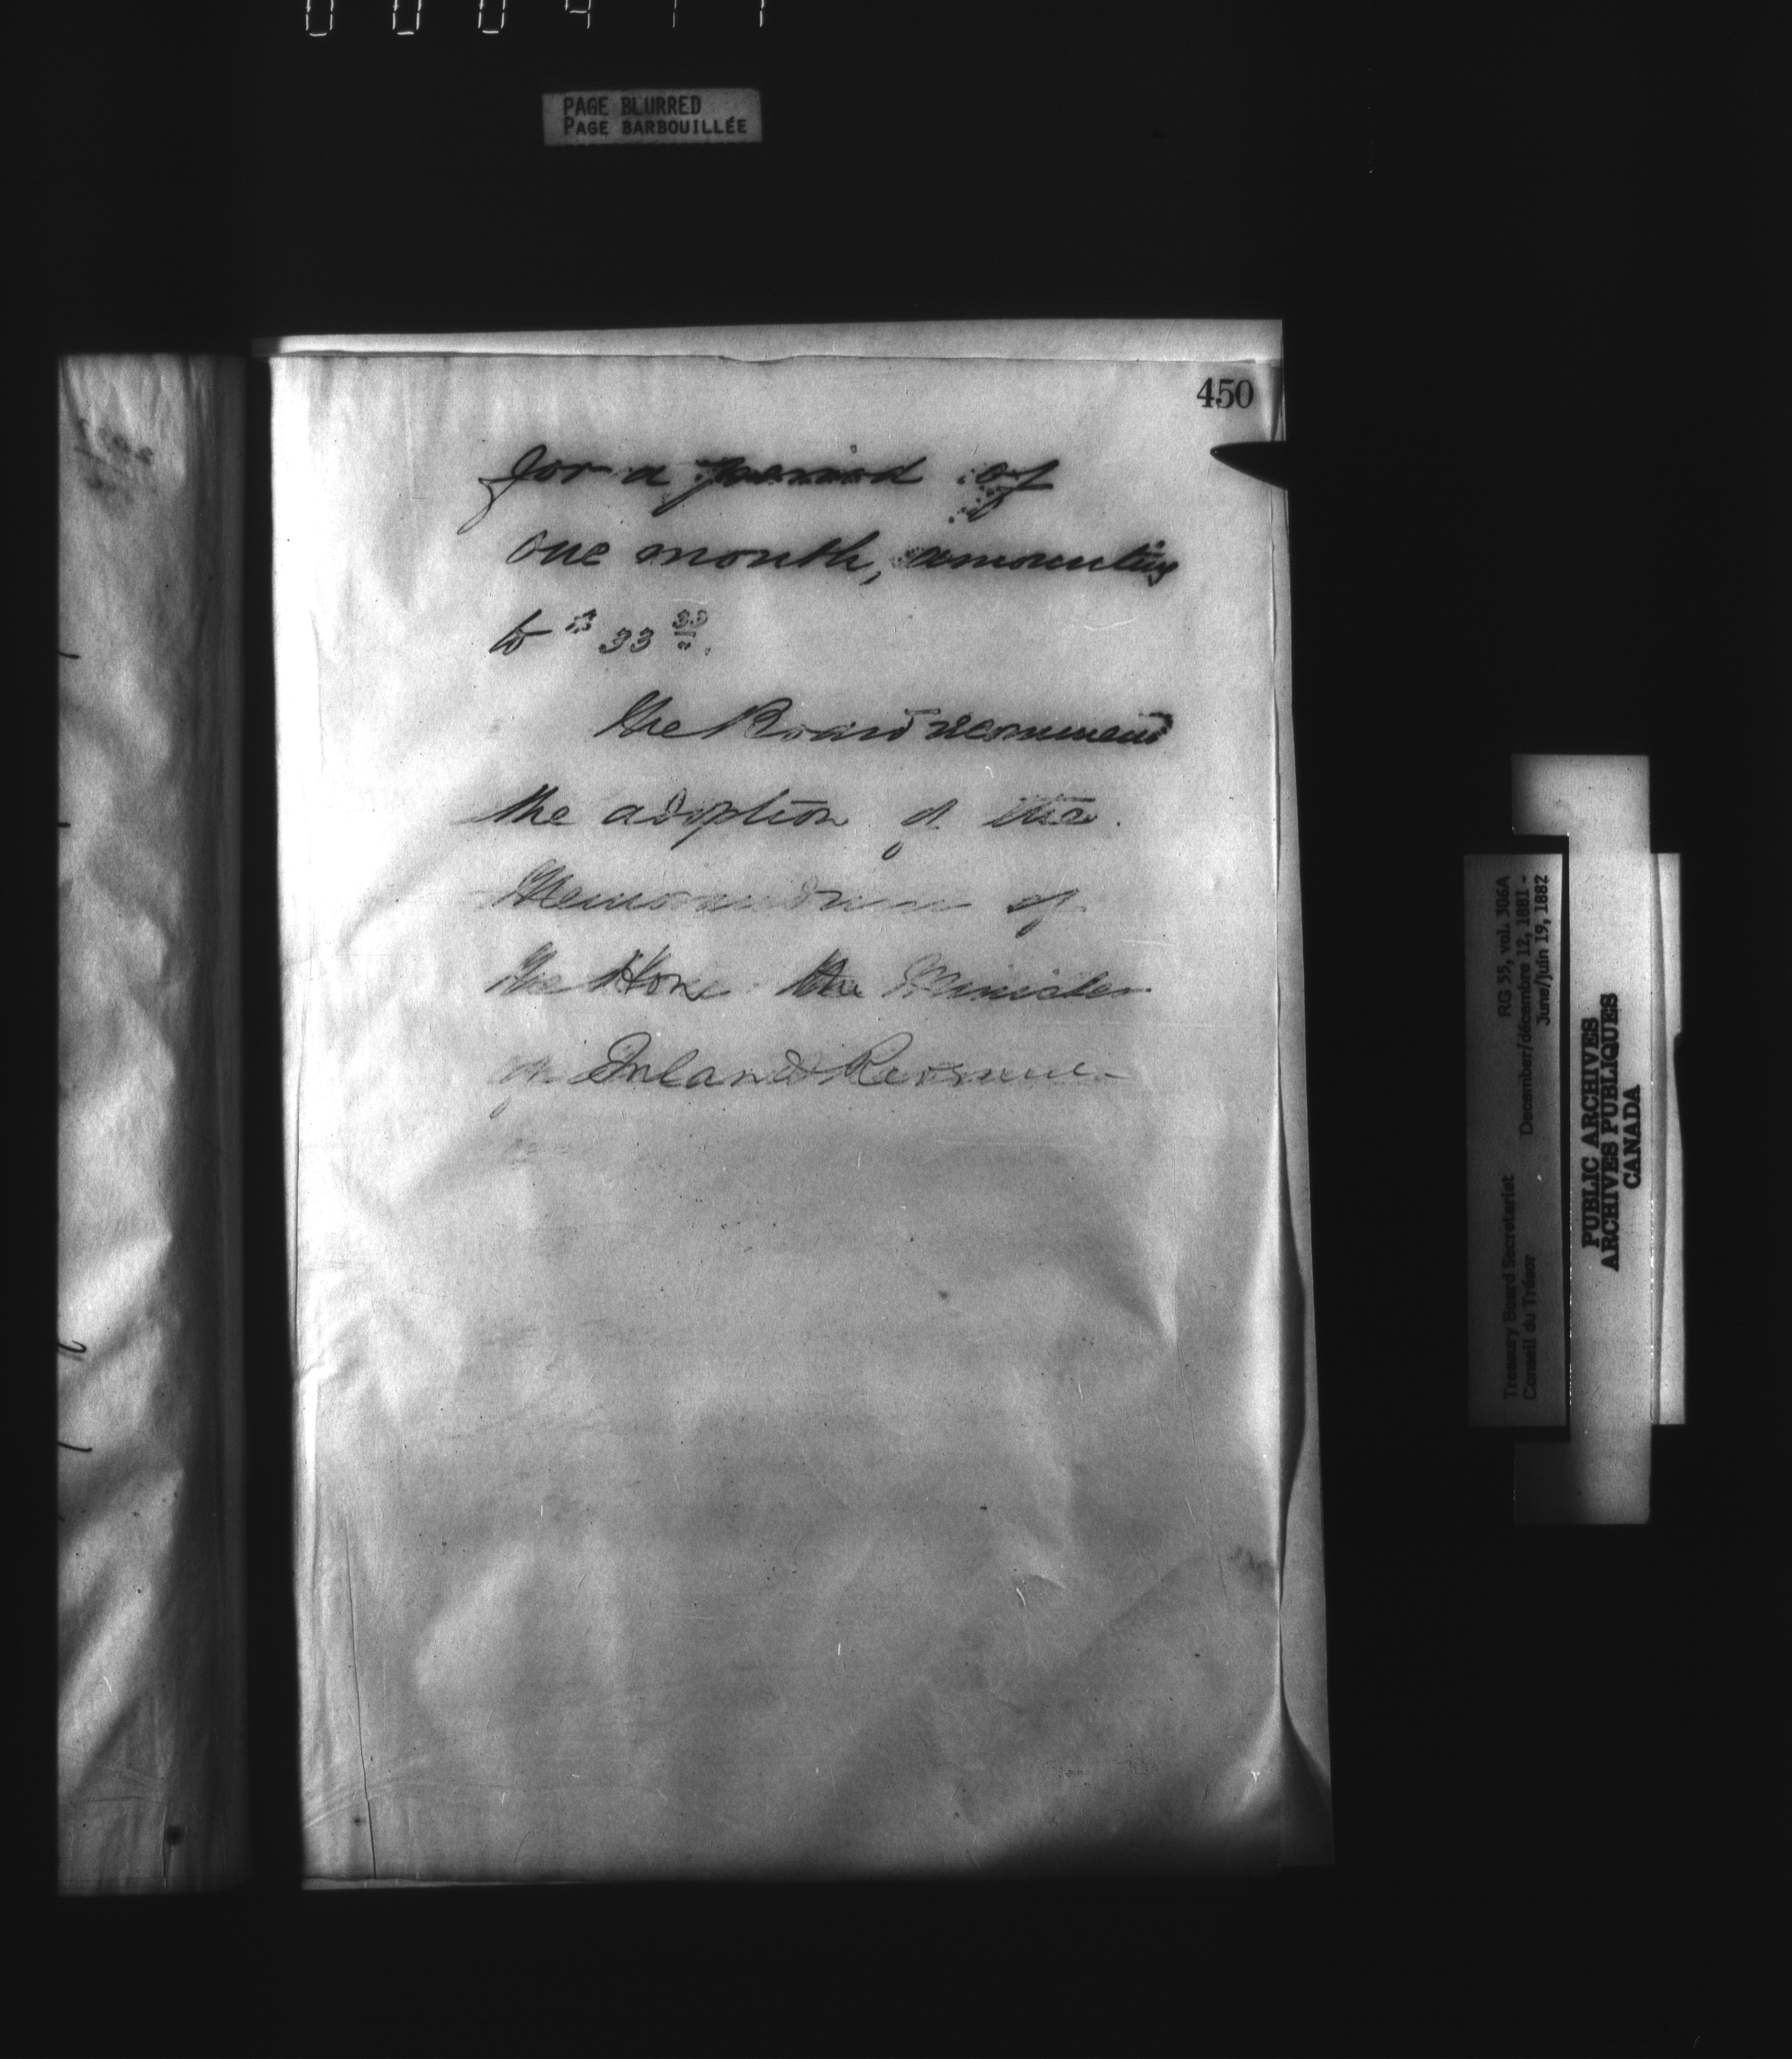 PAGE BLURRED
PAGE BARBOUILLÉE
450
for a period of
one month, amounting
to $33 33/"
The Board recommend
the adoption of the
Memorandum of
the Hon. the Minister
of Inland Revenue
Treasury Board Secretariat RG 55, vol. 306A
Conseil du Trésor December/décembre 12, 1881 -
June/juin 19, 1882
PUBLIC ARCHIVES
ARCHIVES PUBLIQUES
CANADA